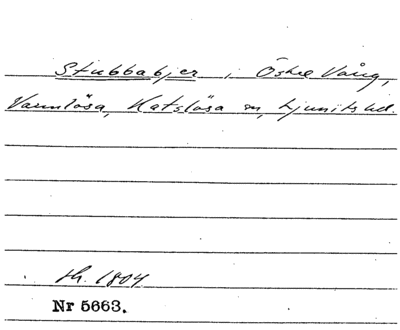 Stubbabjer i Östra Vång,
Varmlösa, Katslösa sn, Ljunits hd.
sk. 1804
Nr 5663.